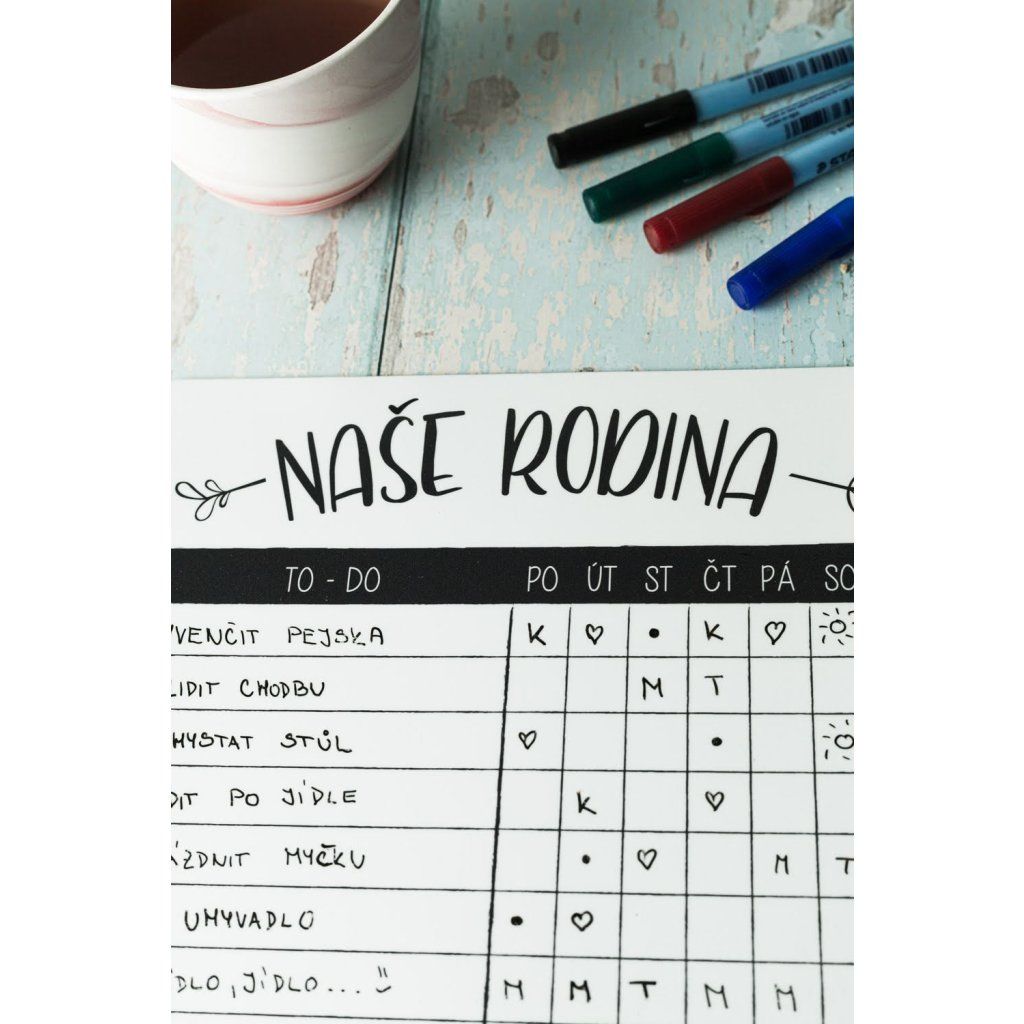 STA
NAŠE RODINA
TO - DO PO ÚT ST ČT PÁ SO
VENČIT PEJSKA K ♡ • K ♡
LIDIT CHODBU M T
MYSTAT STŮL ♡ •
DIT PO JÍDLE K ♡
ÁZDNIT MYČKU • ♡ M T
UMYVADLO • ♡
ÍDLO, JÍDLO... M M T M M